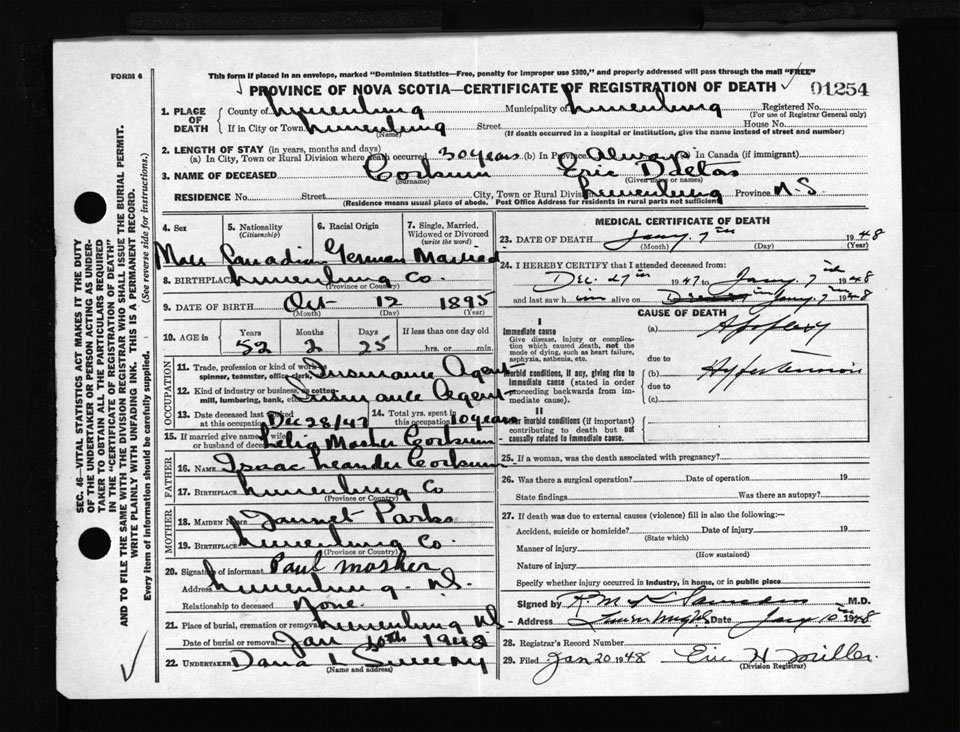 FORM 6
This form if placed in an envelope, marked "Dominion Statistics—Free, penalty for improper use $300," and properly addressed will pass through the mail "FREE"
PROVINCE OF NOVA SCOTIA—CERTIFICATE OF REGISTRATION OF DEATH
01254
1. PLACE OF DEATH
County of Lunenburg Municipality of Lunenburg Registered No.
(For use of Registrar General only)
If in City or Town Lunenburg Street House No.
(Name) (If death occurred in a hospital or institution, give the name instead of street and number)
2. LENGTH OF STAY (in years, months and days)
(a) In City, Town or Rural Division where death occurred 30 years (b) In Province Always In Canada (if immigrant)
3. NAME OF DECEASED Corkum Eric
(Surname) (Given name or names)
RESIDENCE No. Street City, Town or Rural Division Lunenburg Province N-S
(Residence means usual place of abode. Post Office Address for residents in rural parts not sufficient)
4. Sex 5. Nationality (Citizenship) 6. Racial Origin 7. Single, Married, Widowed or Divorced (write the word)
Male Canadian German Married
8. BIRTHPLACE Lunenburg Co.
(Province or Country)
9. DATE OF BIRTH Oct 12 1895
(Month) (Day) (Year)
10. AGE in Years Months Days If less than one day old
52 2 25 hrs. or min.
OCCUPATION
11. Trade, profession or kind of work as spinner, teamster, office clerk, Insurance Agent
12. Kind of industry or business, as cotton-mill, lumbering, bank, etc. Insurance Agent
13. Date deceased last worked at this occupation Dec 28/47 14. Total yrs. spent in this occupation 10 years
15. If married give name of wife or husband of deceased Lelia Mosher Corkum
FATHER
16. NAME Isaac Leander Corkum
17. BIRTHPLACE Lunenburg Co
(Province or Country)
MOTHER
18. MAIDEN NAME Jannet Parks
19. BIRTHPLACE Lunenburg Co.
(Province or Country)
20. Signature of informant Paul Mosher
Address Lunenburg N.S.
Relationship to deceased None
21. Place of burial, cremation or removal Lunenburg N.S.
Date of burial or removal Jan 10th 1948
22. UNDERTAKER Dana L Sweeny
(Name and address)
MEDICAL CERTIFICATE OF DEATH
23. DATE OF DEATH Jany. 7th 1948
(Month) (Day) (Year)
24. I HEREBY CERTIFY that I attended deceased from:
Dec. 27th 1947 to Jany. 7th 1948
and last saw him alive on Jany. 7th 1948
CAUSE OF DEATH
I
Immediate cause
Give disease, injury or complication which caused death, not the mode of dying, such as heart failure, asphyxia, asthenia, etc.
(a) Apoplexy
due to
Morbid conditions, if any, giving rise to immediate cause (stated in order proceeding backwards from immediate cause).
(b) Hypertension
due to
(c)
II
Other morbid conditions (if important) contributing to death but not causally related to immediate cause.
25. If a woman, was the death associated with pregnancy?
26. Was there a surgical operation? Date of operation 19
State findings Was there an autopsy?
27. If death was due to external causes (violence) fill in also the following:—
Accident, suicide or homicide? Date of injury 19
(State which)
Manner of injury
(How sustained)
Nature of injury
Specify whether injury occurred in industry, in home, or in public place
Signed by M.D.
Address Date Jany 10th 1948
28. Registrar's Record Number
29. Filed Jan 20 1948 Eric H Miller.
(Division Registrar)
SEC. 46—VITAL STATISTICS ACT MAKES IT THE DUTY
OF THE UNDERTAKER OR PERSON ACTING AS UNDER-
TAKER TO OBTAIN ALL THE PARTICULARS REQUIRED
IN THE "CERTIFICATE OF REGISTRATION OF DEATH"
AND TO FILE THE SAME WITH THE DIVISION REGISTRAR WHO SHALL ISSUE THE BURIAL PERMIT.
WRITE PLAINLY WITH UNFADING INK. THIS IS A PERMANENT RECORD.
Every item of information should be carefully supplied. (See reverse side for instructions.)